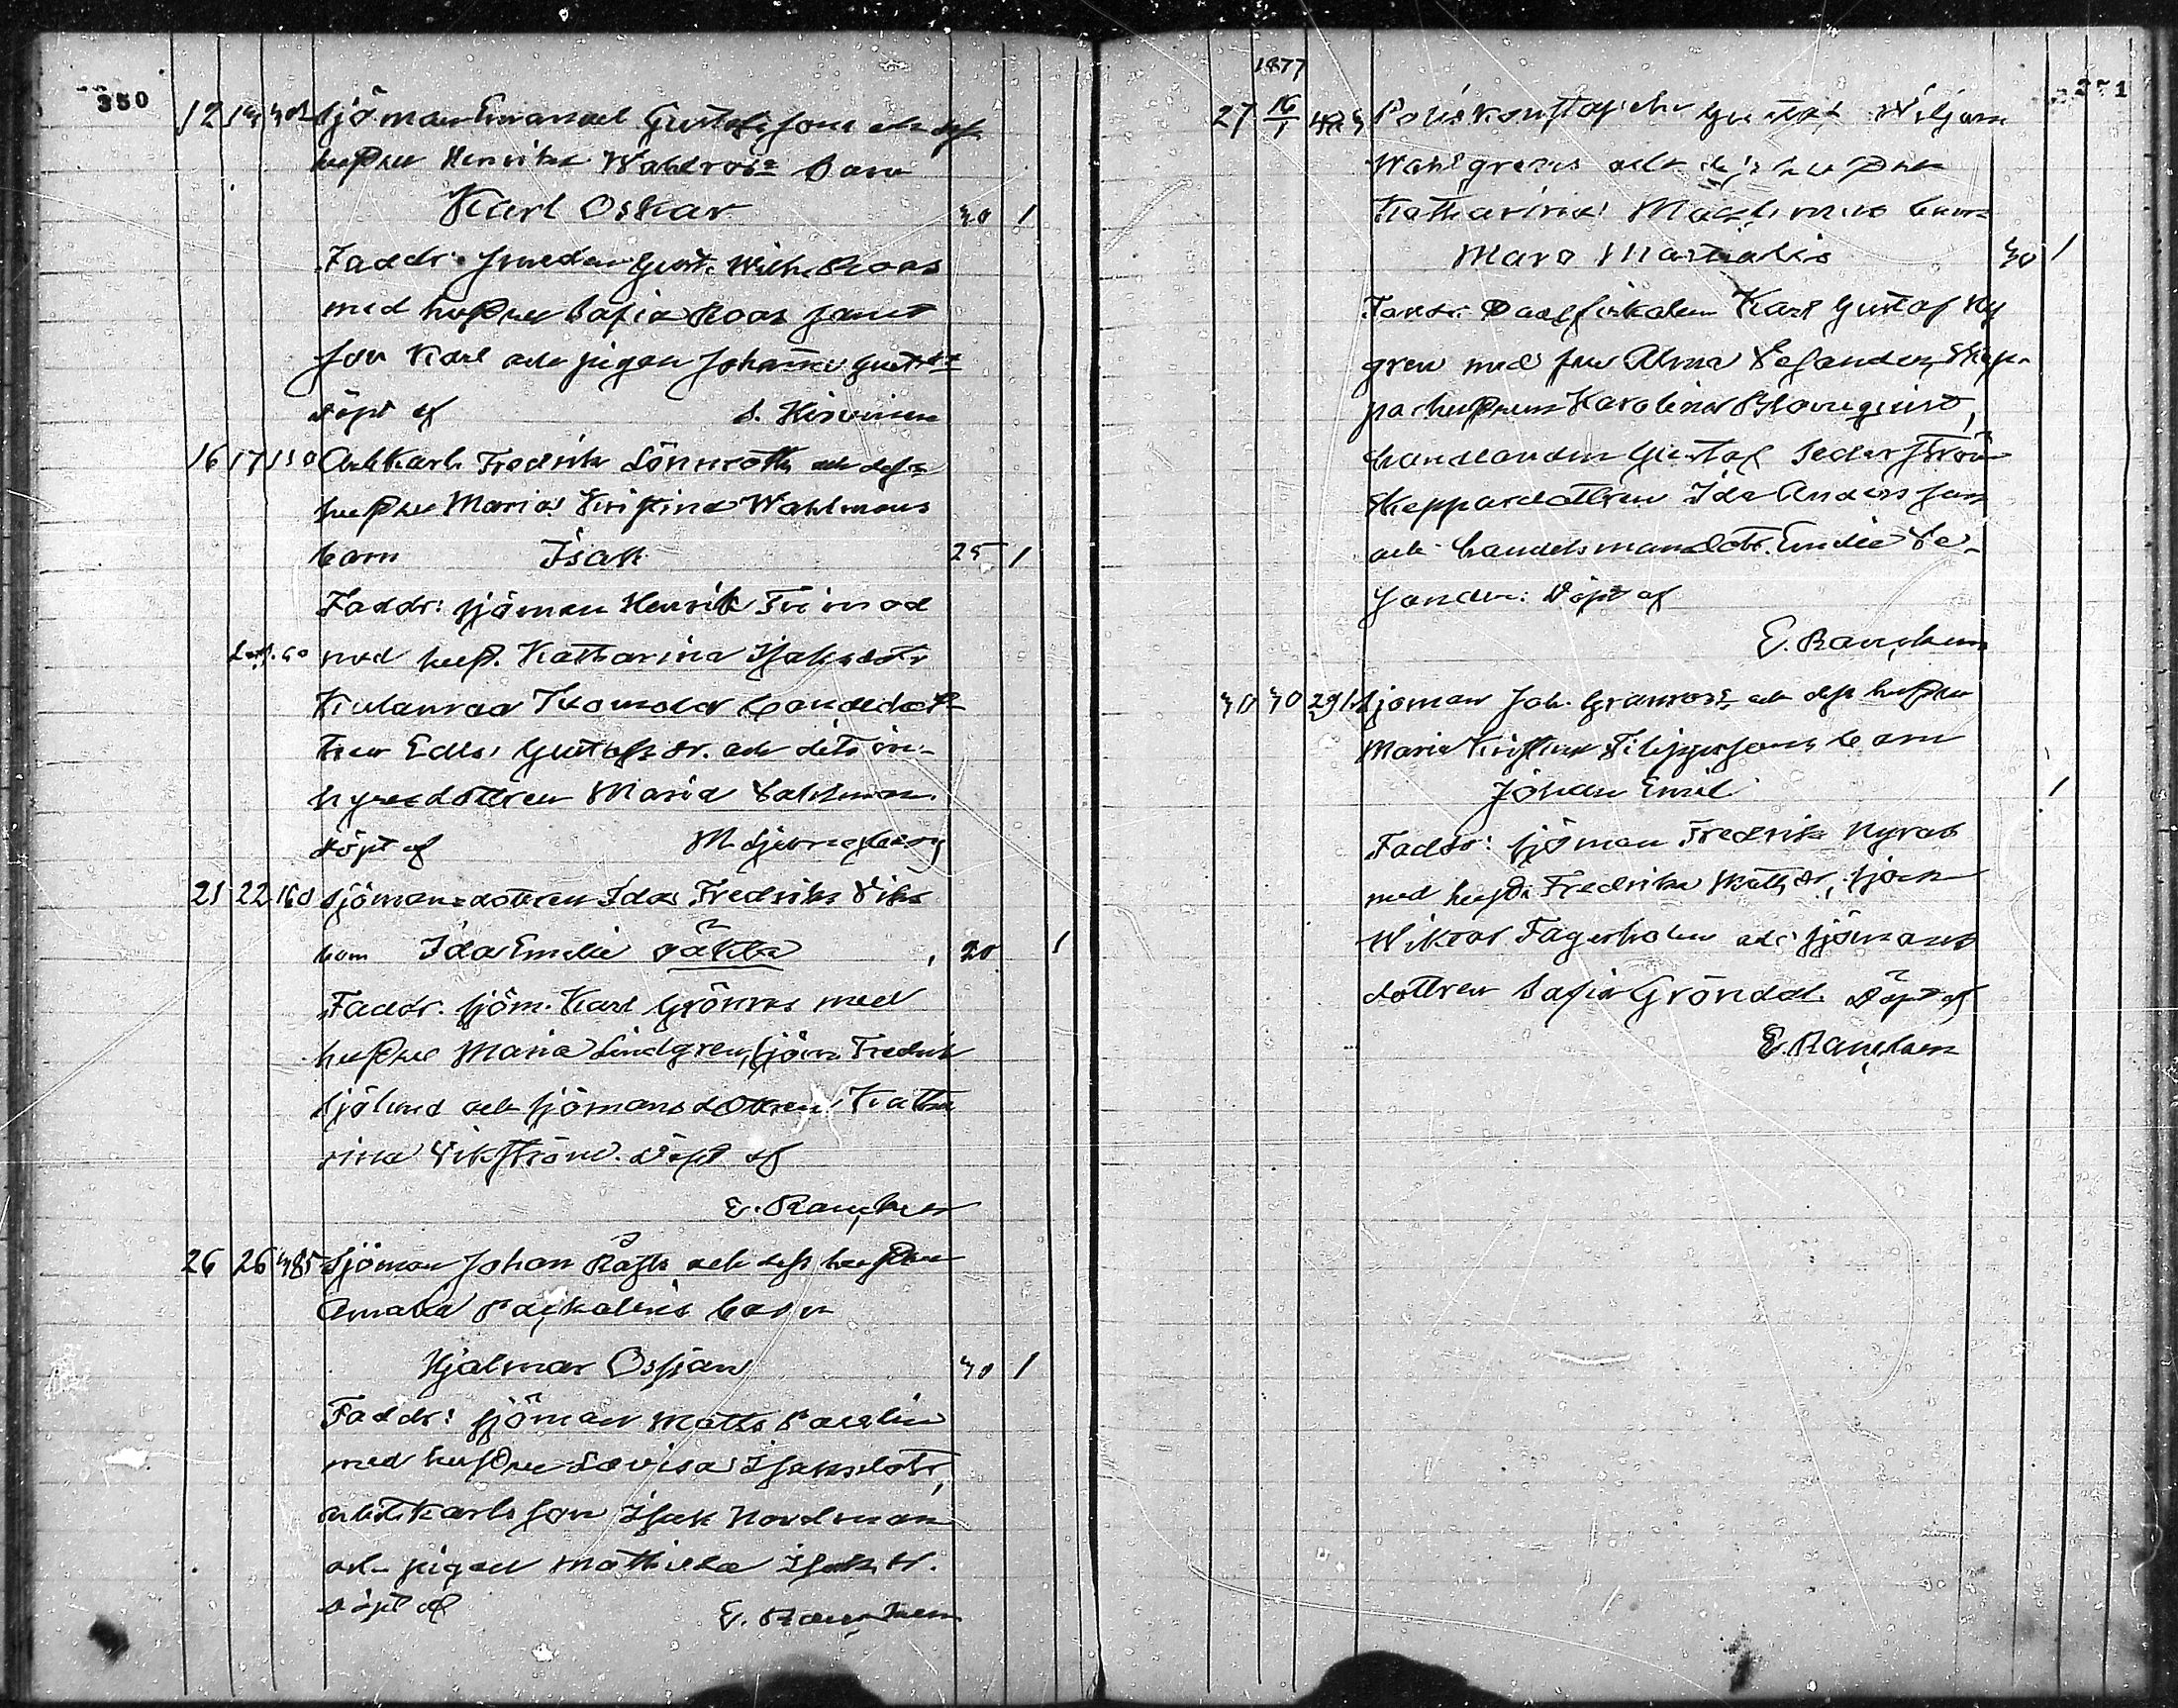 350
12 14 Sjöman Emanuel Gustafsson och dess
hustru Henrika Wahlroos barn
Karl Oskar 30 1
Faddr: smeden Gust. Wilh. Roos
med hustru Sofia Roos samt
son Karl och pigan Johanna Gust.dr
Döpt af S. Hirvinen
16 17 150 Arb.karl Fredrik Lönnroth och dess
hustru Maria Kristina Wahlmans
barn Isak 25 1
Faddr: sjöman Henrik
med hust. Katharina Isaksdotr
bondedot-
tren Edla Gustafsdr. och dito in-
hyresdottren Maria
Döpt af M. Ljungberg
21 22 160 Sjömansdottren Ida Fredrika Viks
barn Ida Emelia oäkta 20 1
Faddr. sjöm. Karl Grönroos med
hustru Maria Lindgren, sjöm. Fredrik
Sjölund och sjömansdottren Katha
rina Vikström. Döpt af
E. Rancken
26 26 385 Sjöman Johan Råfts och dess hustru
Amanda barn
Hjalmar Ossian 30 1
Faddr: sjöman Matts
med hustru Lovisa Isaksdotr,
arbetskarls son Isak Nordman
och pigan Mathilda Isaksdr.
Döpt af E. Rancken
1877
271
27 16/1 Poliskonstapeln Gustaf Wiljam
Wahlgrens och dess hustru
Katharina barn
Maro Martialis 30 1
Faddr: Karl Gustaf Ny
gren med fru Alma Lesander, Skep-
parhustrun Karolina Blomqvist,
handlanden Gustaf Sederström
Skeppardottren Ida Andersson
och handelsmansdotr. Emelie Le-
sander. Döpt af
E. Rancken
30 30 291 Sjöman Joh. Granroos och dess hustru
Maria Kristina Filippssons barn
Johan Emil 1
Faddr: sjöman Fredrik Nyroos
med hustr. Fredrika Mattsdr, sjöm
Wiktor Fagerholm och sjömans
dottren Sofia Gröndal. Döpt af
E. Rancken